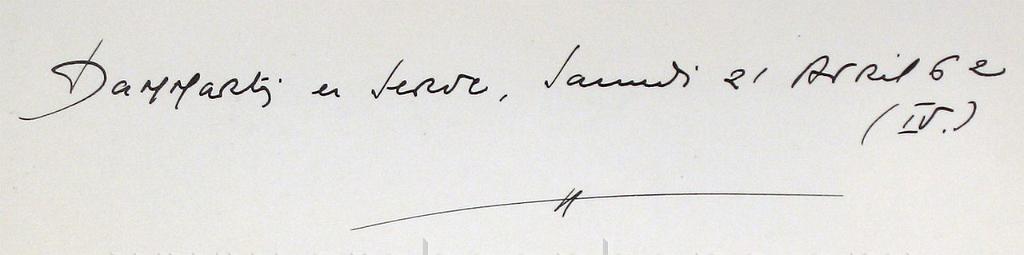 Dammartin en Serve, Samedi 21 Avril 62
(IV.)